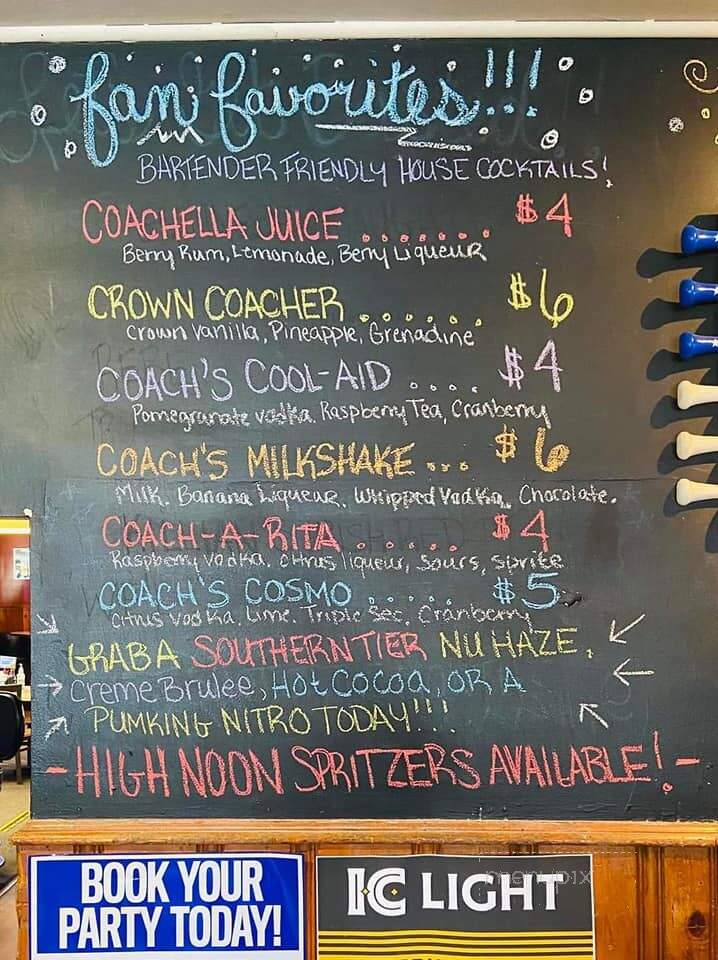 fan favorites!!!
BARTENDER FRIENDLY HOUSE COCKTAILS!
COACHELLA JUICE ....... $4
Berry Rum, Lemonade, Berry Liqueur
CROWN COACHER ...... $6
Crown Vanilla, Pineapple, Grenadine
COACH'S COOL-AID .... $4
Pomegranate vodka, Raspberry Tea, Cranberry
COACH'S MILKSHAKE ... $6
Milk, Banana Liqueur, Whipped Vodka, Chocolate.
COACH-A-RITA ..... $4
Raspberry vodka, citrus liqueur, sours, sprite
COACH'S COSMO ..... $5
Citrus Vodka, Lime, Triple Sec, Cranberry
GRAB A SOUTHERN TIER NU HAZE,
Creme Brulee, Hot Cocoa, OR A
PUMKING NITRO TODAY!!!
-HIGH NOON SPRITZERS AVAILABLE!-
BOOK YOUR
PARTY TODAY!
IC LIGHT
menupix